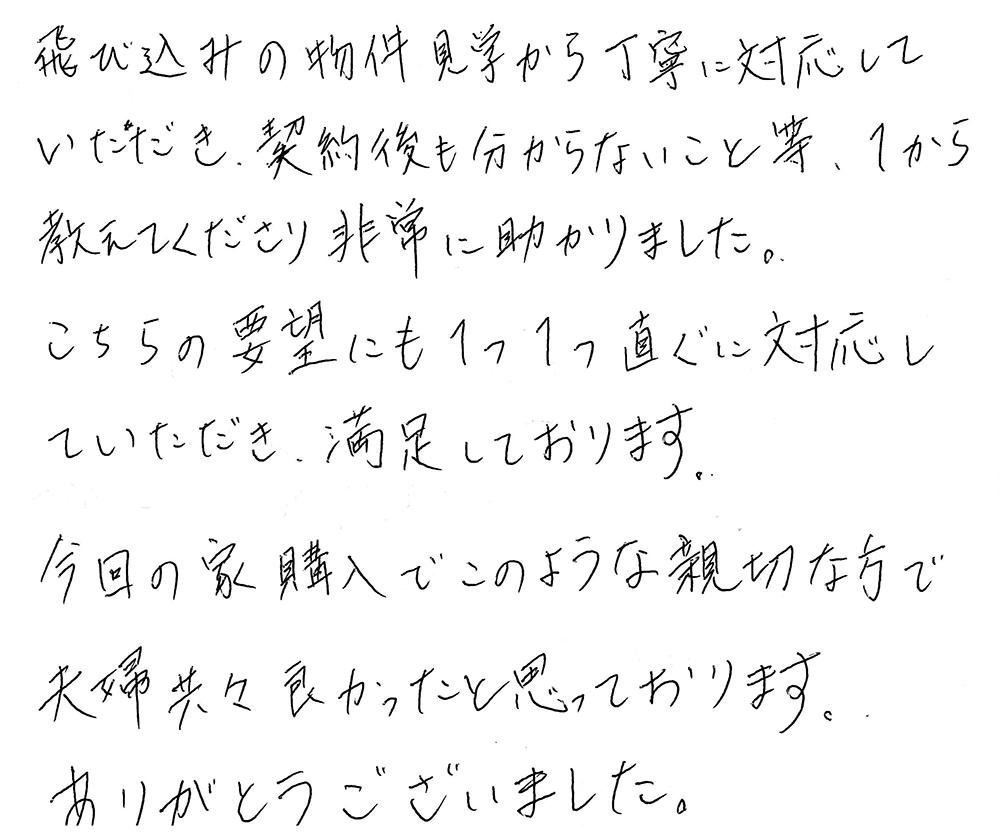 飛び込みの物件見学から丁寧に対応して
いただき、契約後も分からないこと等、1から
教えてくださり非常に助かりました。
こちらの要望にも1つ1つ直ぐに対応し
ていただき、満足しております。
今回の家購入でこのような親切な方で
夫婦共々良かったと思っております。
ありがとうございました。